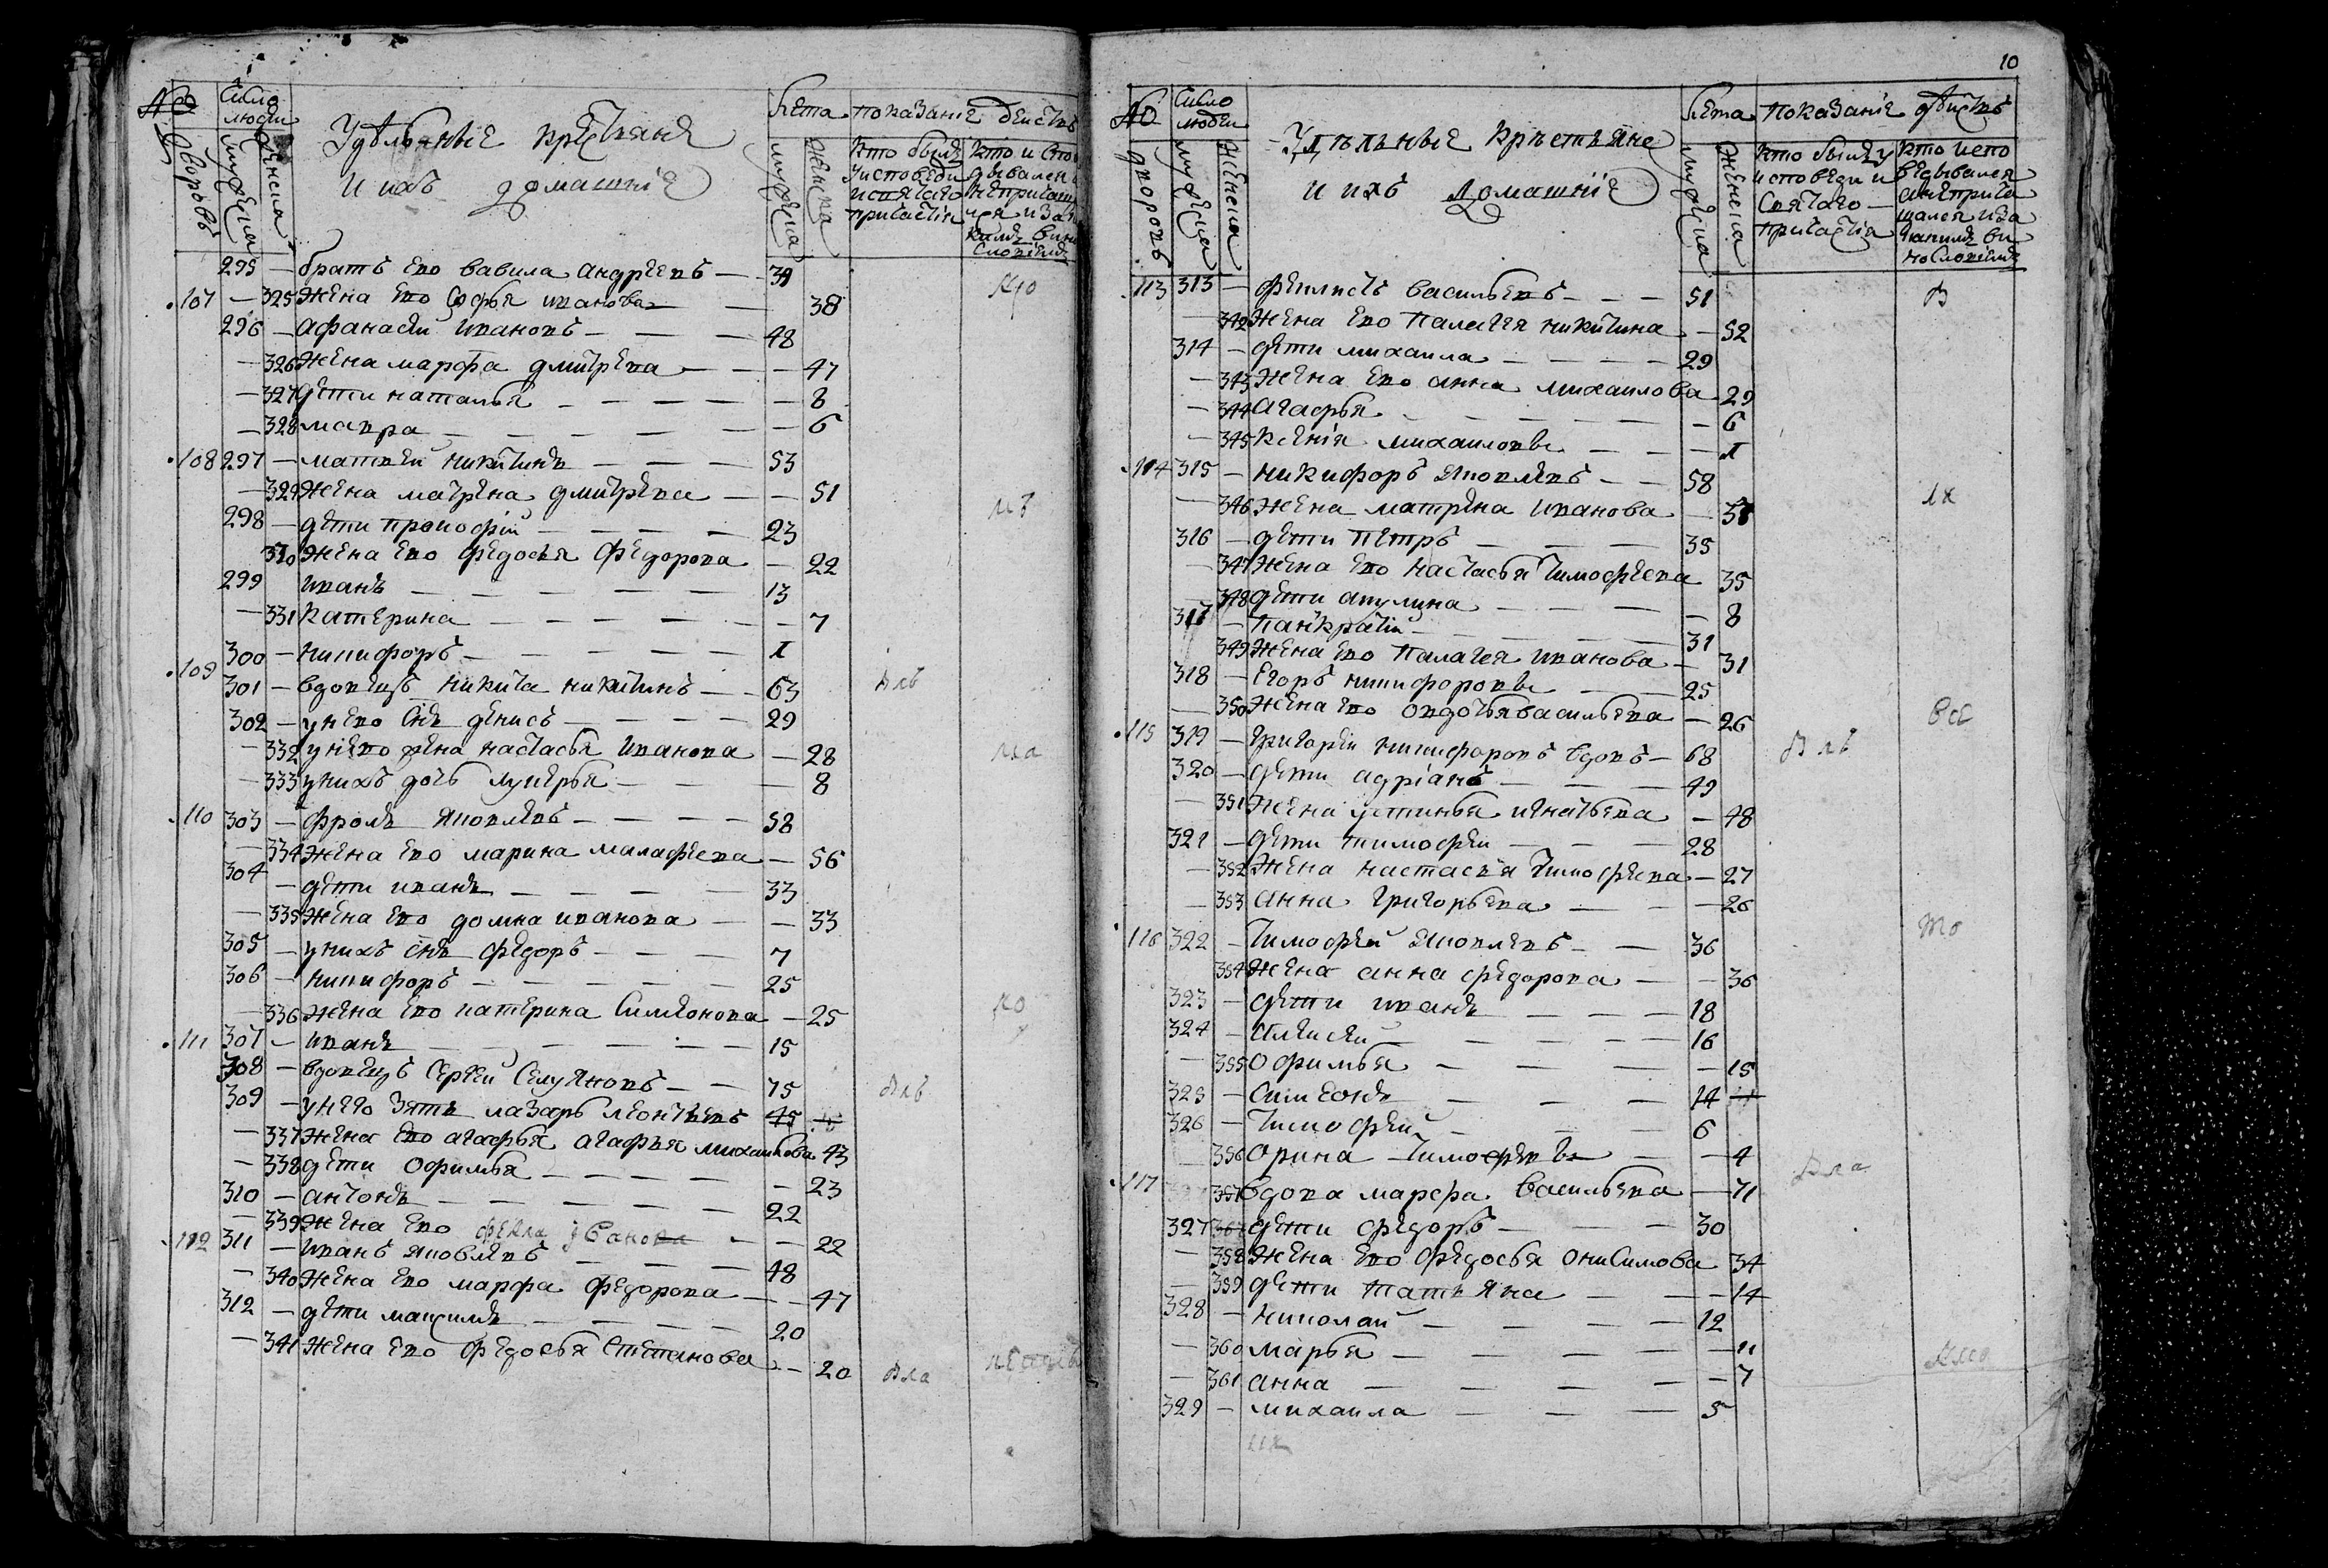 № дворовъ
Число людей
мужеска
женска
Удѣльные крестьяне
и ихъ домашнія
Лѣта
мужеска
женска
показаніе действъ
кто былъ
у исповеди
и святаго
причастія
295 — братъ ево вавила андреевъ — 39
107 — 325 жена ево софья иванова — 38
296 — афанасей ивановъ — 48
— 326 жена марфа дмитрева — 47
— 327 дети наталья — 8
— 328 мавра — 6
108 297 — матвей никитинъ — 53
— 329 жена матрена дмитрева — 51
298 — дети прокофій — 23
330 жена ево федосья федорова — 22
299 иванъ — 13
— 331 катерина — 7
300 — никифоръ — 1
109 301 — вдовецъ никита никитинъ — 63
302 — у нево снъ денисъ — 29
— 332 у нево жена настасья иванова — 28
— 333 у нихъ дочь лукерья — 8
110 303 — фролъ яковлевъ — 58
— 334 жена ево марина малафеева — 56
304 — дети иванъ — 33
— 335 жена ево домна иванова — 33
305 — у нихъ снъ федоръ — 7
306 — никифоръ — 25
— 336 жена ево катерина симионова — 25
111 307 — иванъ — 15
308 — вдовецъ сергей селуяновъ — 75
309 — у него зять лазарь леонтьевъ 45
— 337 жена ево агафья агафья михайлова 43
— 338 дети офимья — 23
310 — антонъ — 22
— 339 жена ево фекла иванова — 22
112 311 — иванъ яковлевъ — 48
— 340 жена ево марфа федорова — 47
312 — дети максимъ — 20
— 341 жена ево федосья степанова — 20
10
№ дворовъ
Число людей
мужеска
женска
Удѣльные крестьяне
и ихъ домашнія
Лѣта
мужеска
женска
показаніе действъ
кто былъ у
исповеди и
святаго
причастія
кто испо
ведывался
а не прича
щался и за
какимъ ви
нословіемъ
113 313 — феклистъ васильевъ — 51
— 342 жена ево палагея никитина — 52
314 — дети михаила — 29
— 343 жена ево анна михаилова 29
— 344 агафья — 6
— 345 ксенія михаиловы — 1
114 315 — никифоръ яковлевъ — 58
— 346 жена матрена иванова —
316 — дети петръ — 35
— 347 жена ево настасья тимофеева 35
— 348 дети акулина — 8
317 — панкратій — 31
349 жена ево палагея иванова — 31
318 — егоръ никифоровы — 25
— 350 жена ево овдотья васильева — 26
115 319 — григорей никифоровъ вдовъ — 68
320 — дети адріанъ — 49
— 351 жена устинья игнатьева — 48
321 — дети тимофей — 28
— 352 жена настасья тимофеева — 27
— 353 анна григорьева — 26
116 322 — тимофей яковлевъ — 36
354 жена анна федорова — 36
323 — дети иванъ — 18
324 — алексей — 16
— 355 офимья — 15
325 — симеонъ — 14
326 — тимофей — 6
— 356 орина тимофевы — 4
117 357 вдова марфа васильева — 71
327 дети федоръ — 30
— 358 жена ево федосья онисимова 34
— 359 дети татьяна — 14
328 — николай — 12
— 360 марья — 11
— 361 анна — 7
329 — михаила — 5